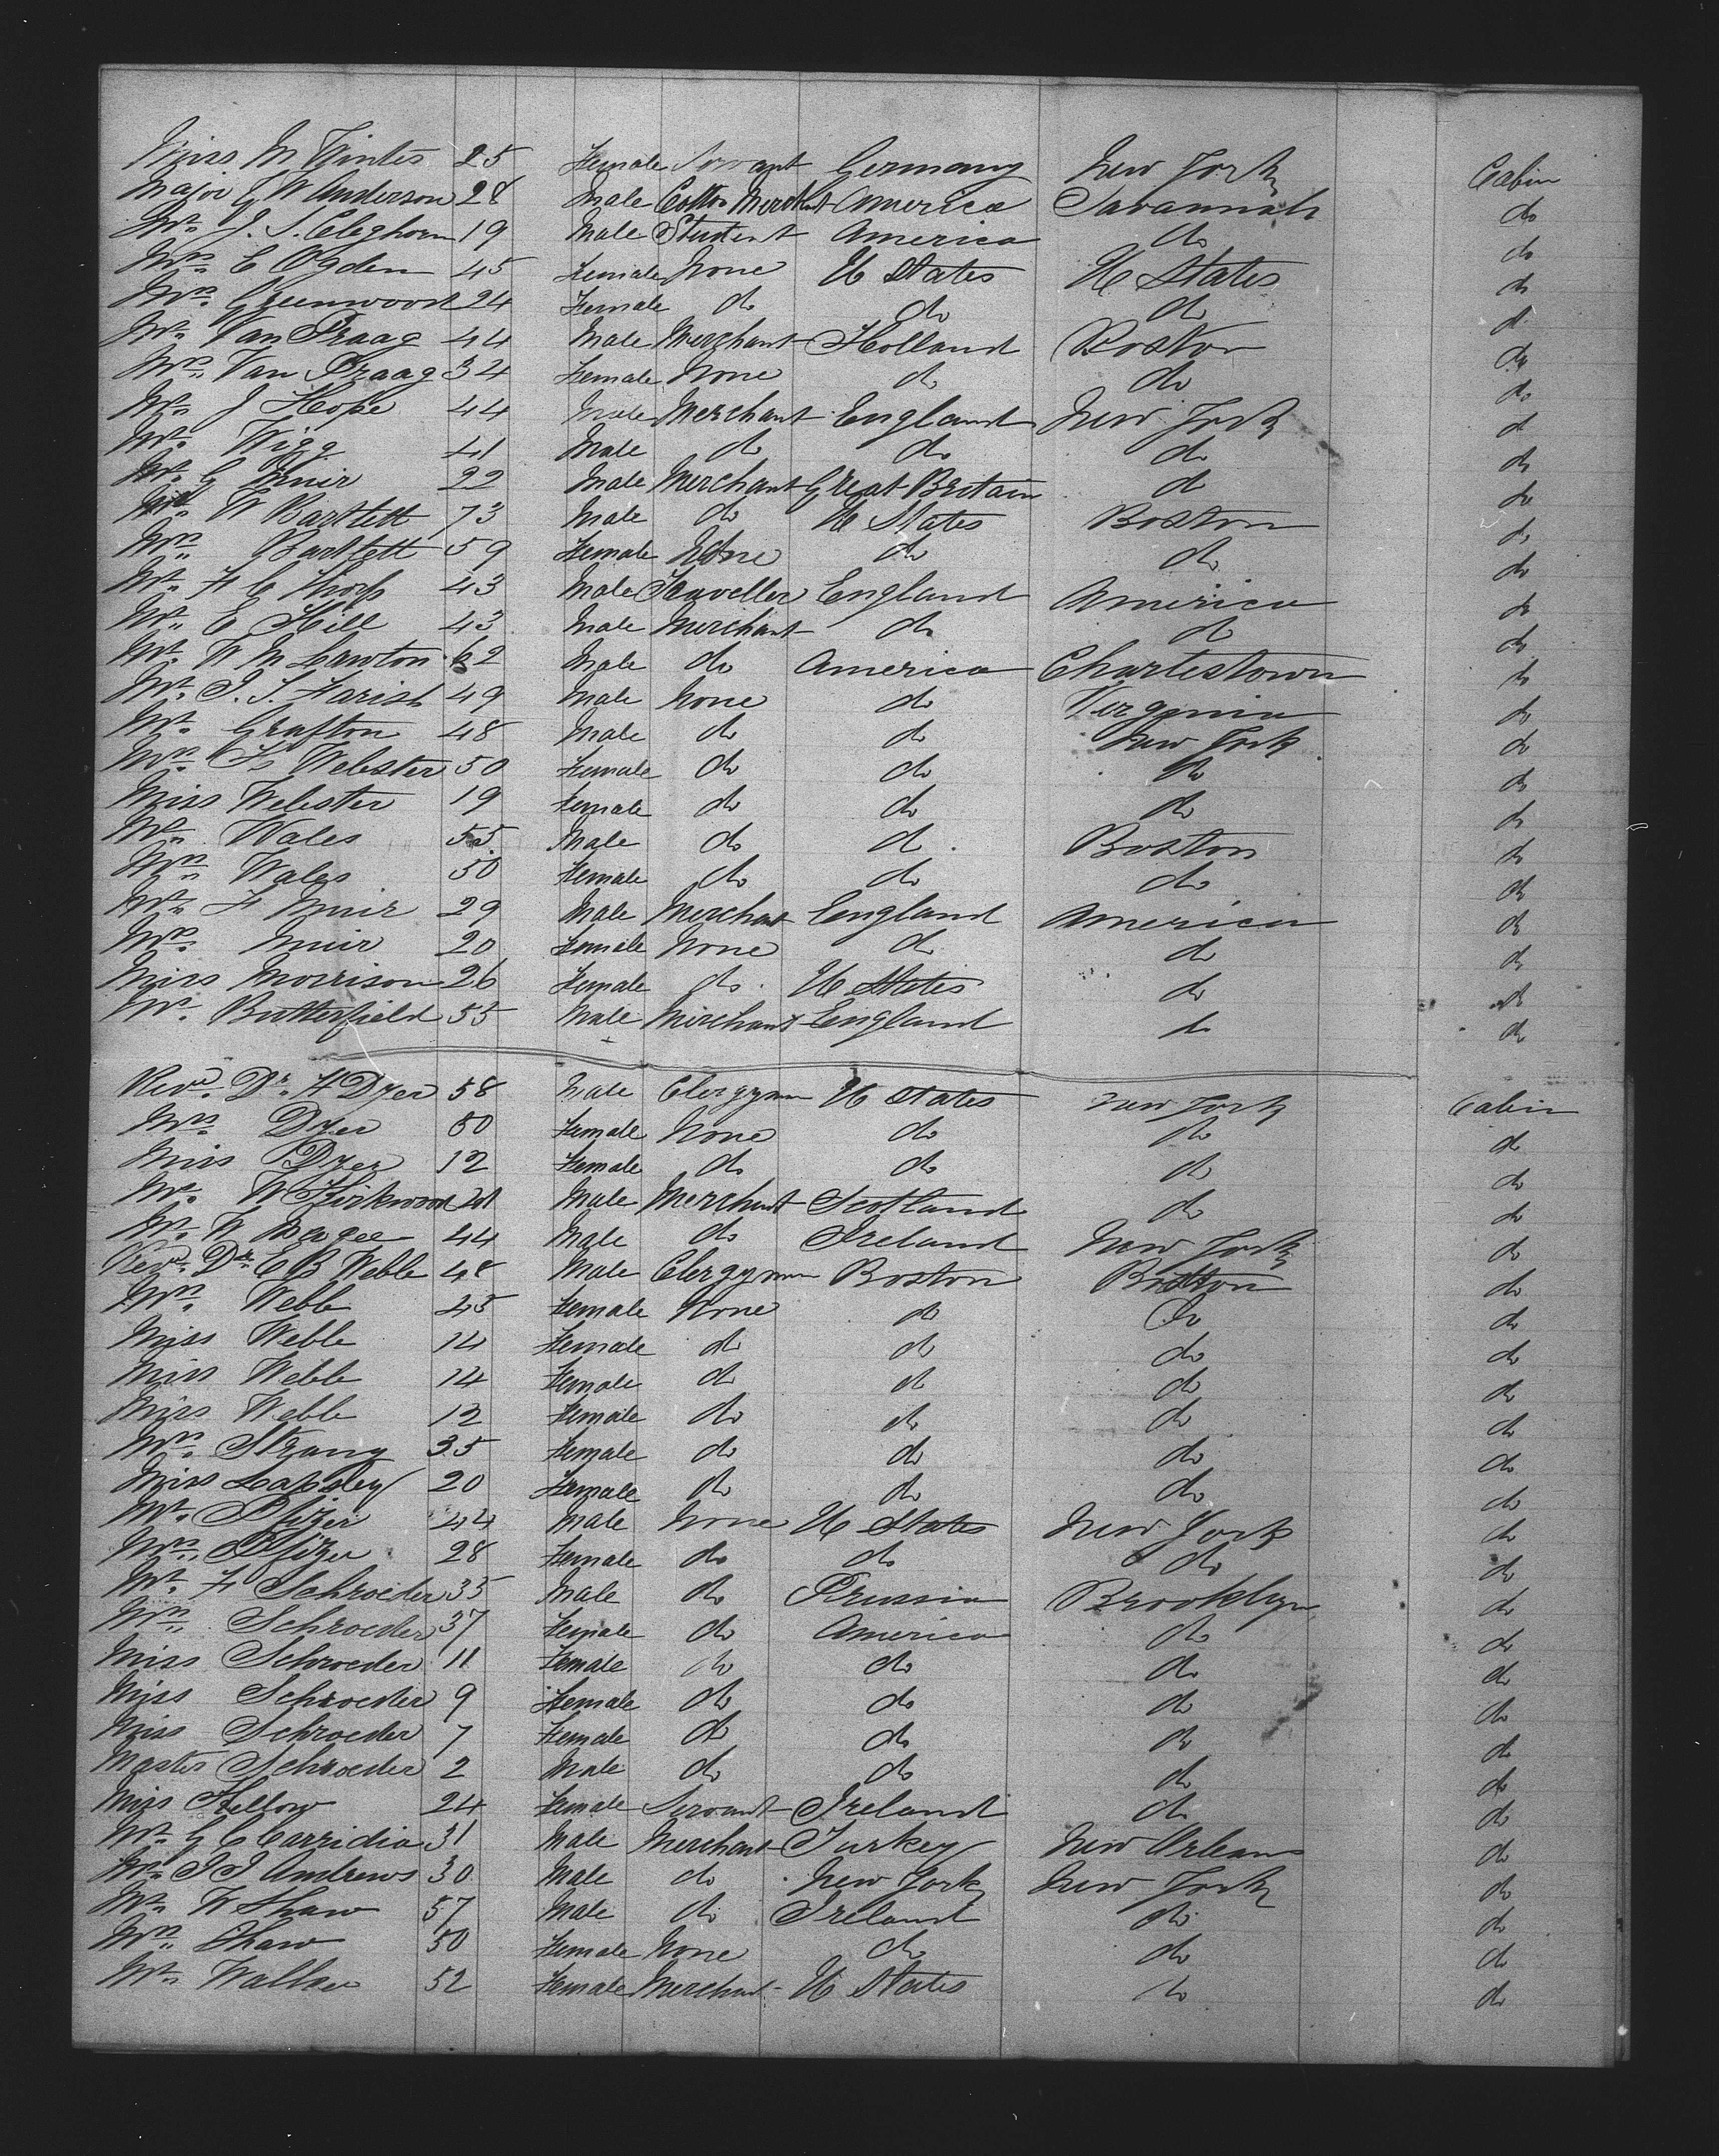 Miss M Winter 25 Female Servant Germany New York Cabin
Major G W Anderson 28 Male Cotton Mercht America Savannah do
Mr. J. S. Cleghorn 19 Male Student America do do
Mrs. E Ogden 45 Female None U States U States do
Mrs. Greenwood 24 Female do do do do
Mr. Van Praag 44 Male Merchant Holland Boston do
Mrs. Van Praag 34 Female None do do do
Mr. J Hope 44 Male Merchant England New York do
Mr. Wigg 41 Male do do do do
Mr. G Muir 22 Male Merchant Great Britain do do
Mr. W Bartlett 73 Male do U States Boston do
Mrs. Bartlett 59 Female None do do do
Mr. F C Thorp 43 Male Traveller England America do
Mr. E Hill 43 Male Merchant do do do
Mr. W M Lawton 62 Male do America Charlestown do
Mr. J. T. Farish 49 Male None do Virginia do
Mr. Grafton 48 Male do do New York do
Mrs. Webster 50 Female do do do do
Miss Webster 19 Female do do do do
Mr. Wales 55 Male do do Boston do
Mrs. Wales 50 Female do do do do
Mr. F Muir 29 Male Merchant England America do
Mrs. Muir 20 Female None do do do
Miss Morrison 26 Female do. U States do do
Mr. Butterfield 55 Male Merchant England do do
Revd. Dr. H Dyer 58 Male Clergyman U States New York Cabin
Mrs. Dyer 50 Female None do do do
Miss Dyer 12 Female do do do do
Mr. W Kirkwood 21 Male Merchant Scotland do do
Mr. W Magee 44 Male do Ireland New York do
Revd. Dr. E B Webb 48 Male Clergyman Boston Boston do
Mrs. Webb 45 Female None do do do
Miss Webb 14 Female do do do do
Miss Webb 14 Female do do do do
Miss Webb 12 Female do do do do
Mrs. Strang 35 Female do do do do
Miss Lapsley 20 Female do do do do
Mr. Pfizer 44 Male None U States New York do
Mrs. Pfizer 28 Female do do do do
Mr. F Schroeder 35 Male do Prussia Brooklyn do
Mrs. Schroeder 37 Female do America do do
Miss Schroeder 11 Female do do do do
Miss Schroeder 9 Female do do do do
Miss Schroeder 7 Female do do do do
Master Schroeder 2 Male do do do do
Miss 24 Female Servant Ireland do do
Mr. G C Carridia 31 Male Merchant Turkey New Orleans do
Mr. J J Andrews 30 Male do New York New York do
Mr. W Shaw 57 Male do Ireland do do
Mrs. Shaw 50 Female None do do do
Mr. Walker 52 Female Merchant U States do do